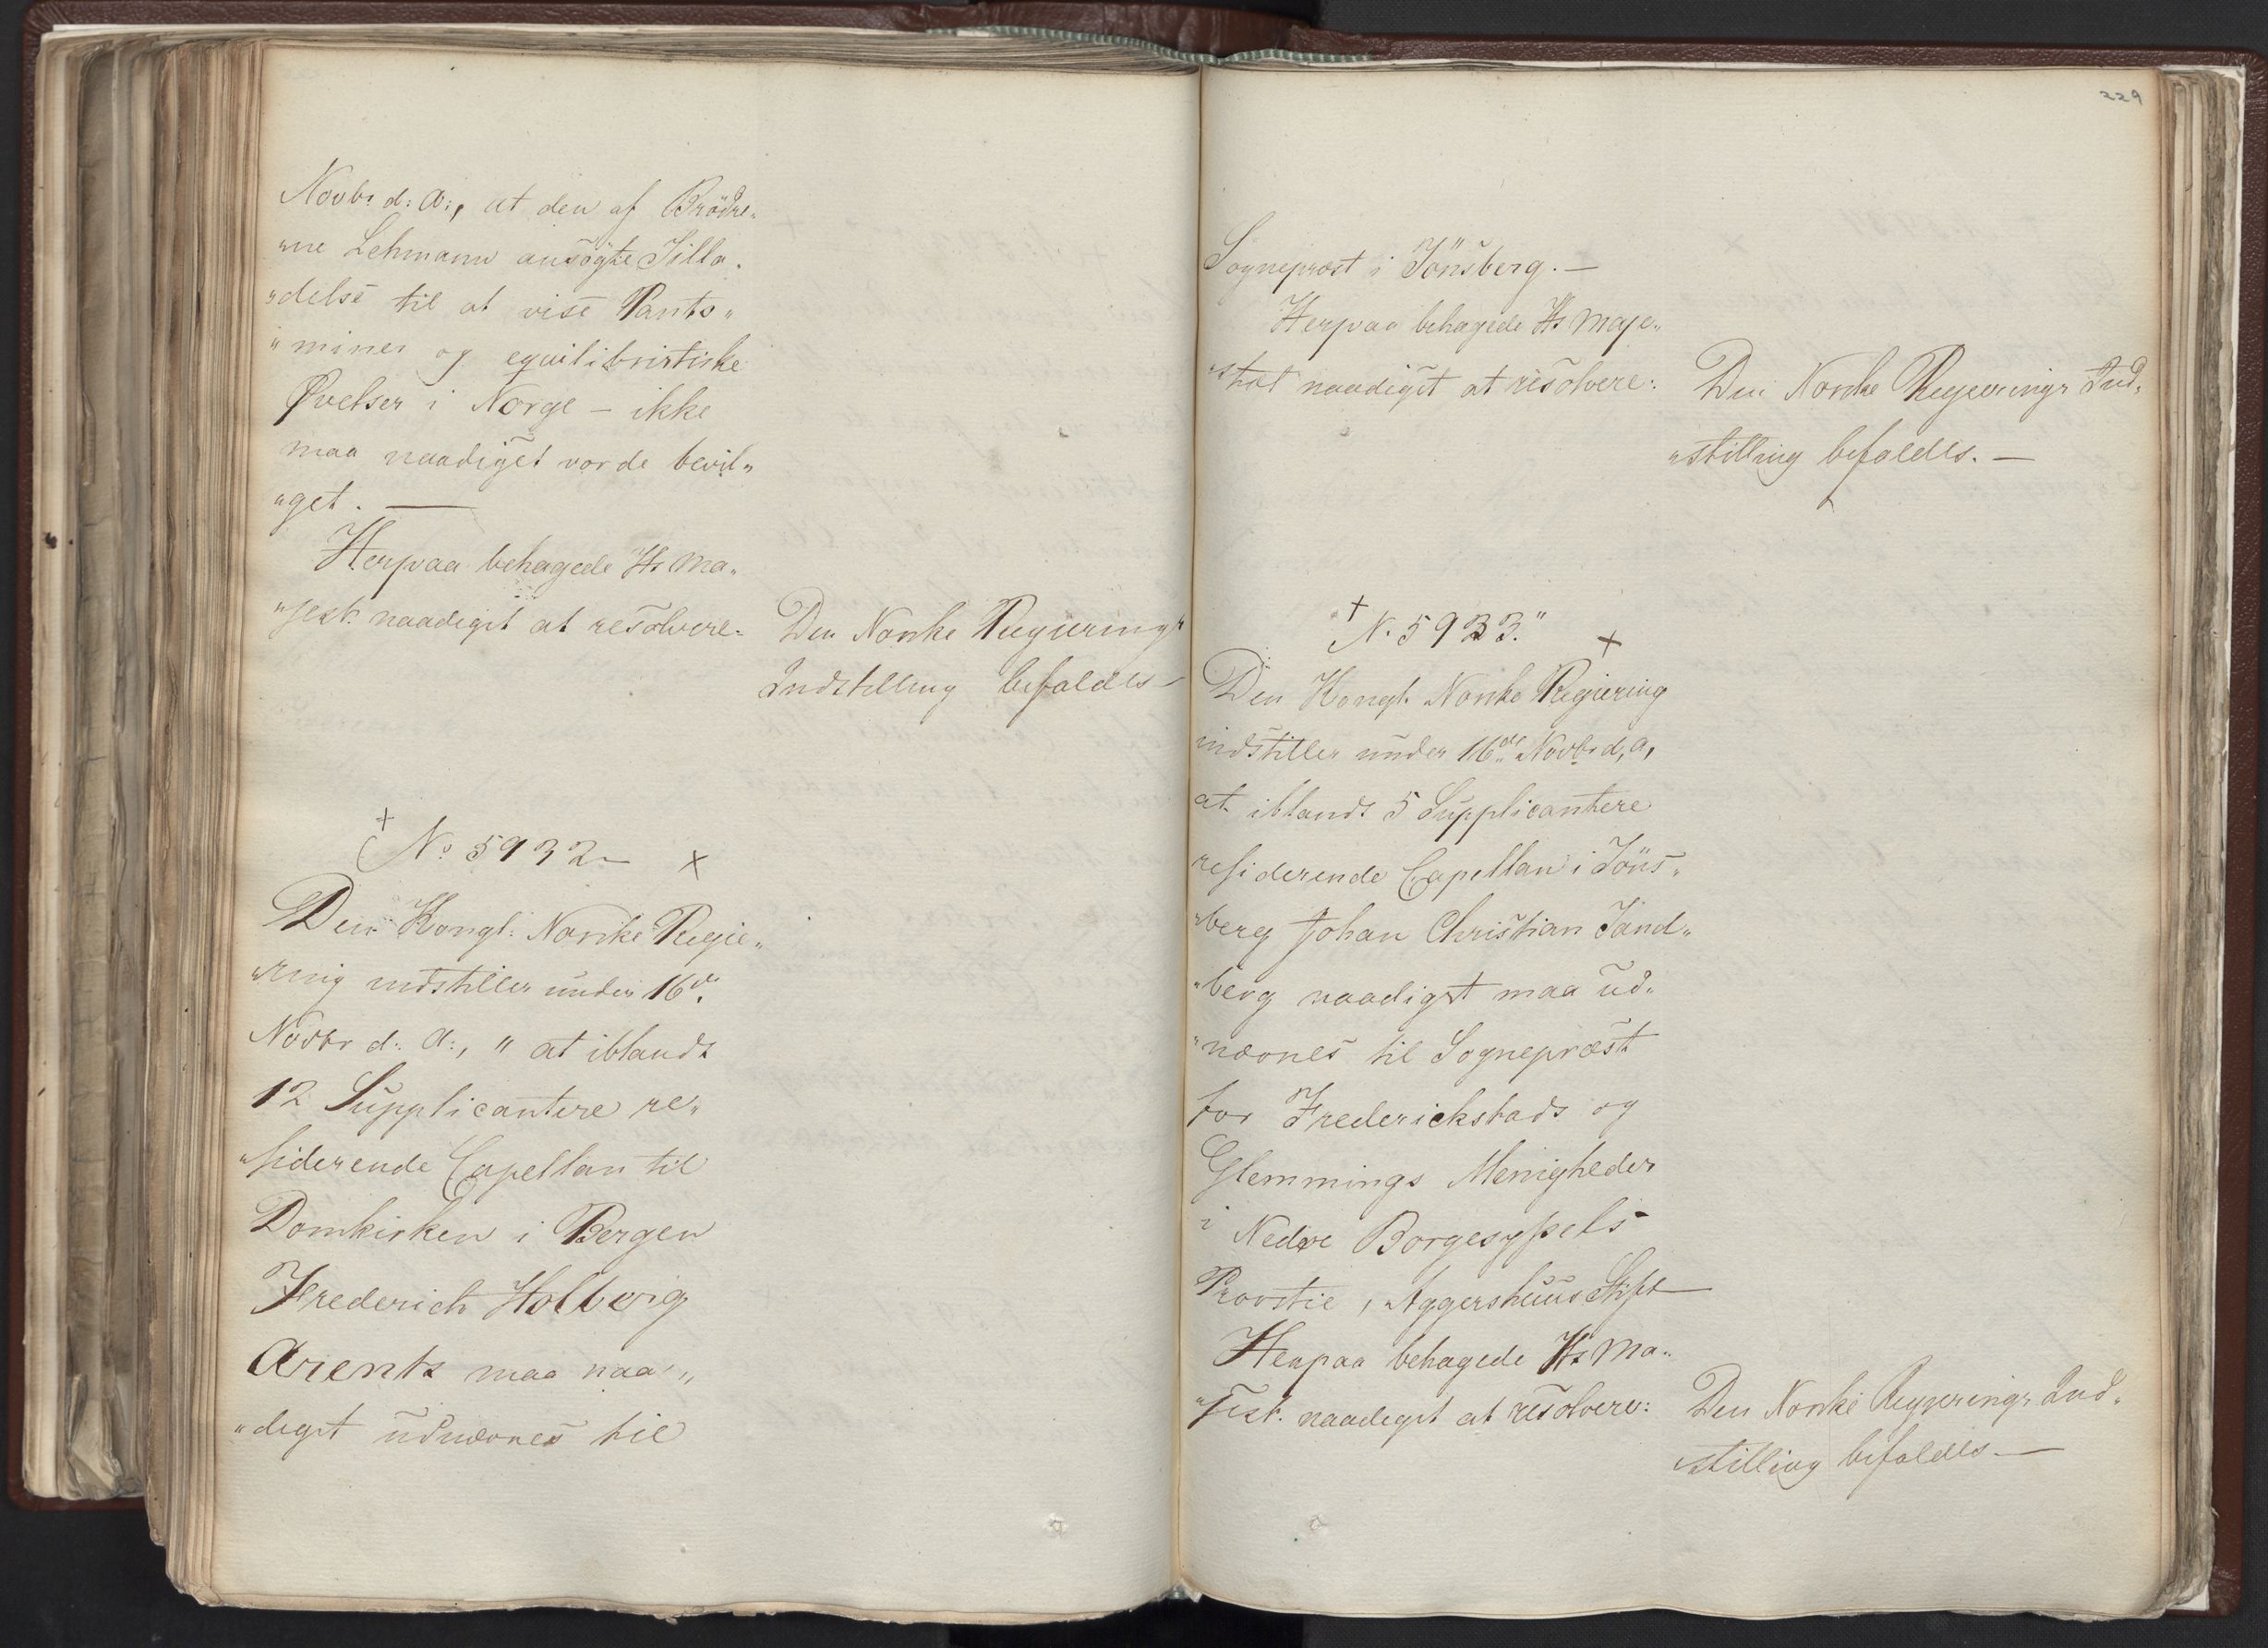 Novbr d: A:, at den af Brödre„
„ne Lehmann ansögte Tilla„
„delse til at vise Panto„
„miner og equilibristiske
Øvelser i Norge – ikke
maa naadigst vorde bevil„
„get. —
Herpaa behagede Hs Ma„
„jest: naadigst at resolvere:
Den Norske Regierings
Indstilling bifaldes –
No 5932 –
Den Kongl: Norske Regie„
„ring indstiller under 16de
Novbr d: A:, " at iblandt
12 Supplicantere re„
„siderende Capellan til
Domkirken i Bergen
Frederich Holberg
Arentz maa naa„
„digst udnævnes til
229
Sognepræst i Tönsberg. –
Herpaa behagede Hs Maje„
„stæt naadigst at resolvere:
Den Norske Regjerings Ind„
„stilling bifaldes. –
N. 5933."
Den Kongl. Norske Regiering
indstiller under 16de Novbr d, a,
at iblandt 5 Supplicantere
residerende Capellan i Töns„
„berg Johan Christian Tand„
„berg naadigst maa ud„
„nævnes til Sognepræst
for Frederickstads og
Glemmings Menigheder
i Nedre Borgesyssels
Provstie, Aggershuus Stift –
Herpaa behagede Hs Ma„
„jest. naadigst at resolvere:
Den Norske Regjerings Ind„
stilling bifaldes –